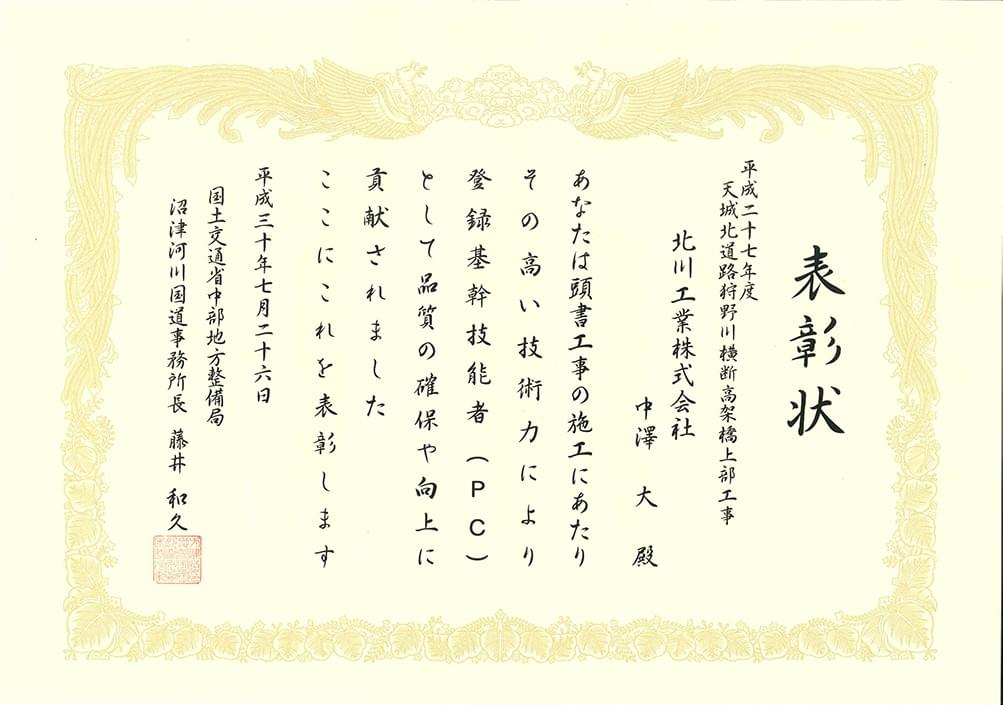 表彰状
平成二十七年度
天城北道路狩野川横断高架橋上部工事
北川工業株式会社
中澤 大 殿
あなたは頭書工事の施工にあたり
その高い技術力により
登録基幹技能者（ＰＣ）
として品質の確保や向上に
貢献されました
ここにこれを表彰します
平成三十年七月二十六日
国土交通省中部地方整備局
沼津河川国道事務所長 藤井 和久